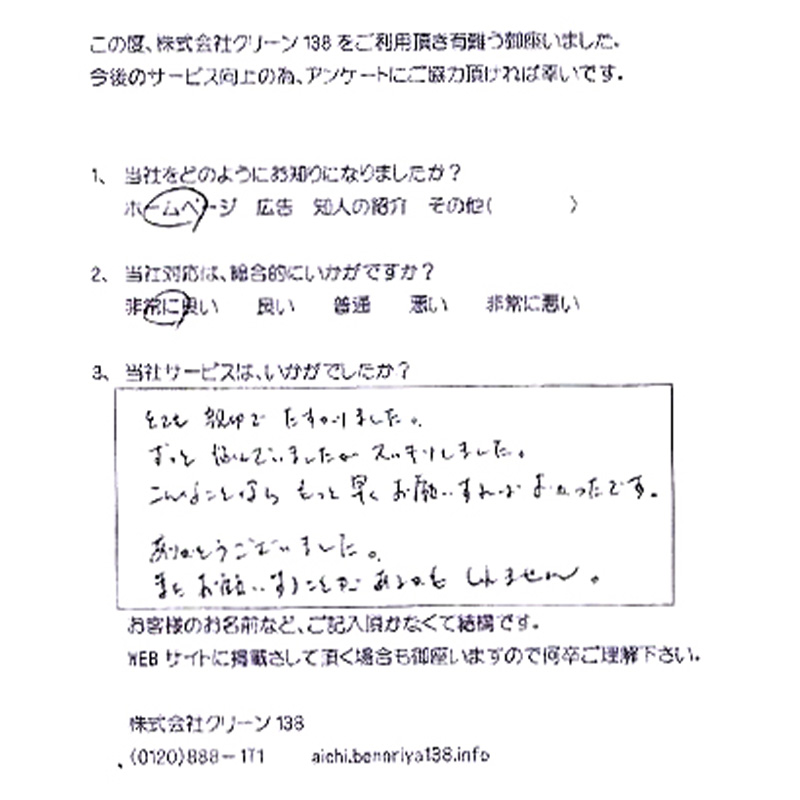 この度、株式会社クリーン138をご利用頂き有難う御座いました。
今後のサービス向上の為、アンケートにご協力頂ければ幸いです。
1、 当社をどのようにお知りになりましたか？
ホームページ 広告 知人の紹介 その他（ ）
2、 当社対応は、総合的にいかがですか？
非常に良い 良い 普通 悪い 非常に悪い
3、 当社サービスは、いかがでしたか？
とても 親切で たすかりました。
ずっと 悩んでいましたが スッキリしました。
こんなことなら もっと 早く お願いすれば よかったです。
ありがとうございました。
また お願いすることが あるかも しれません。
お客様のお名前など、ご記入頂かなくて結構です。
WEBサイトに掲載さして頂く場合も御座いますので何卒ご理解下さい。
株式会社クリーン138
(0120)888-171 aichi.bennriya138.info